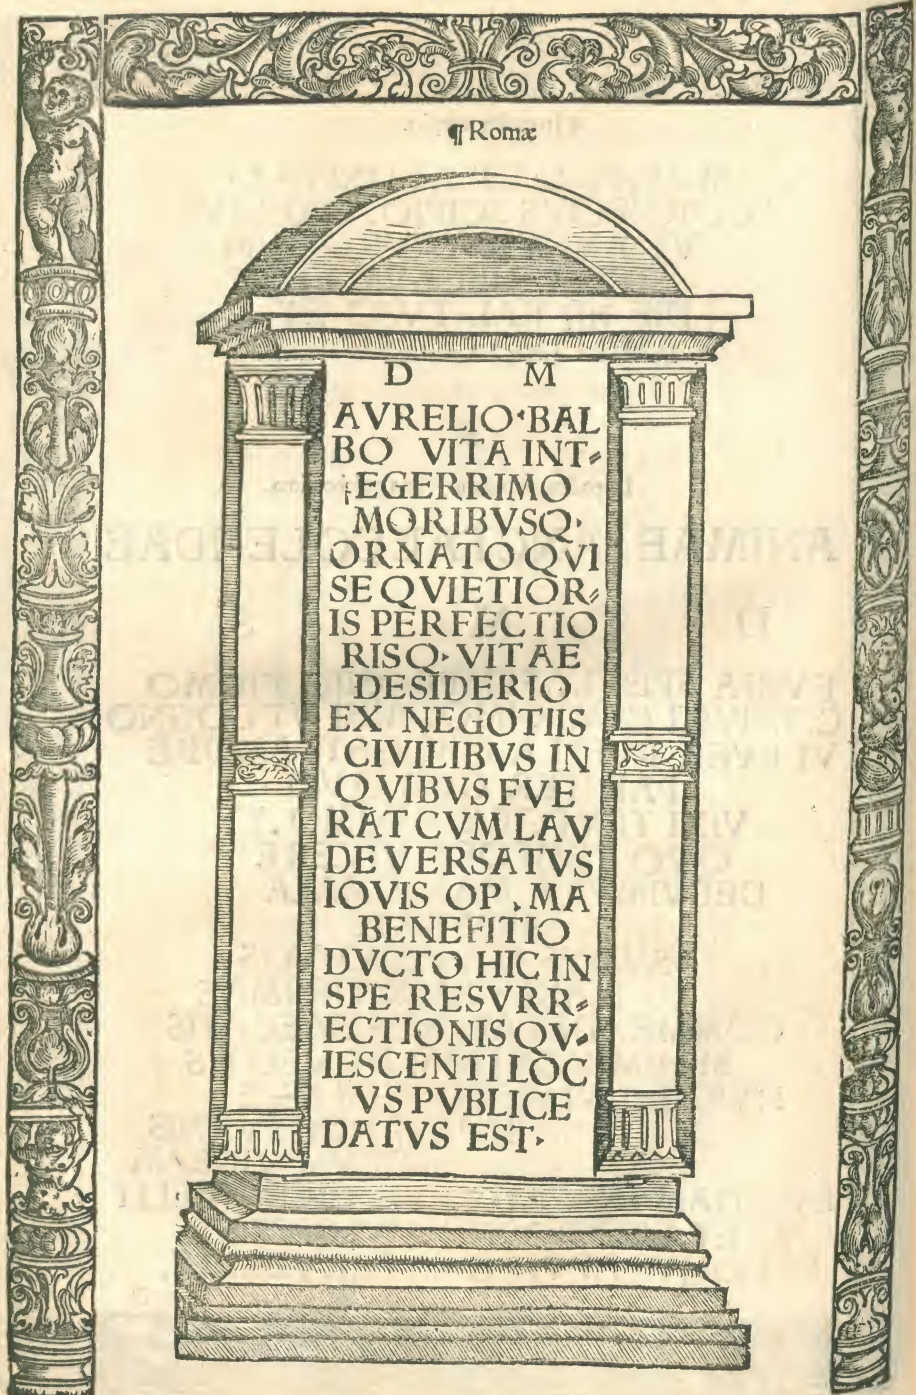 ¶ Romæ
D M
AVRELIO·BAL
BO VITA INT⸗
EGERRIMO
MORIBVSQ·
ORNATO QVI
SE QVIETIOR⸗
IS PERFECTIO
RISQ· VITAE
DESIDERIO
EX NEGOTIIS
CIVILIBVS IN
QVIBVS FVE
RAT CVM LAV
DE VERSATVS
IOVIS OP. MA
BENEFITIO
DVCTO HIC IN
SPE RESVRR⸗
ECTIONIS QV⸗
IESCENTI LOC
VS PVBLICE
DATVS EST·